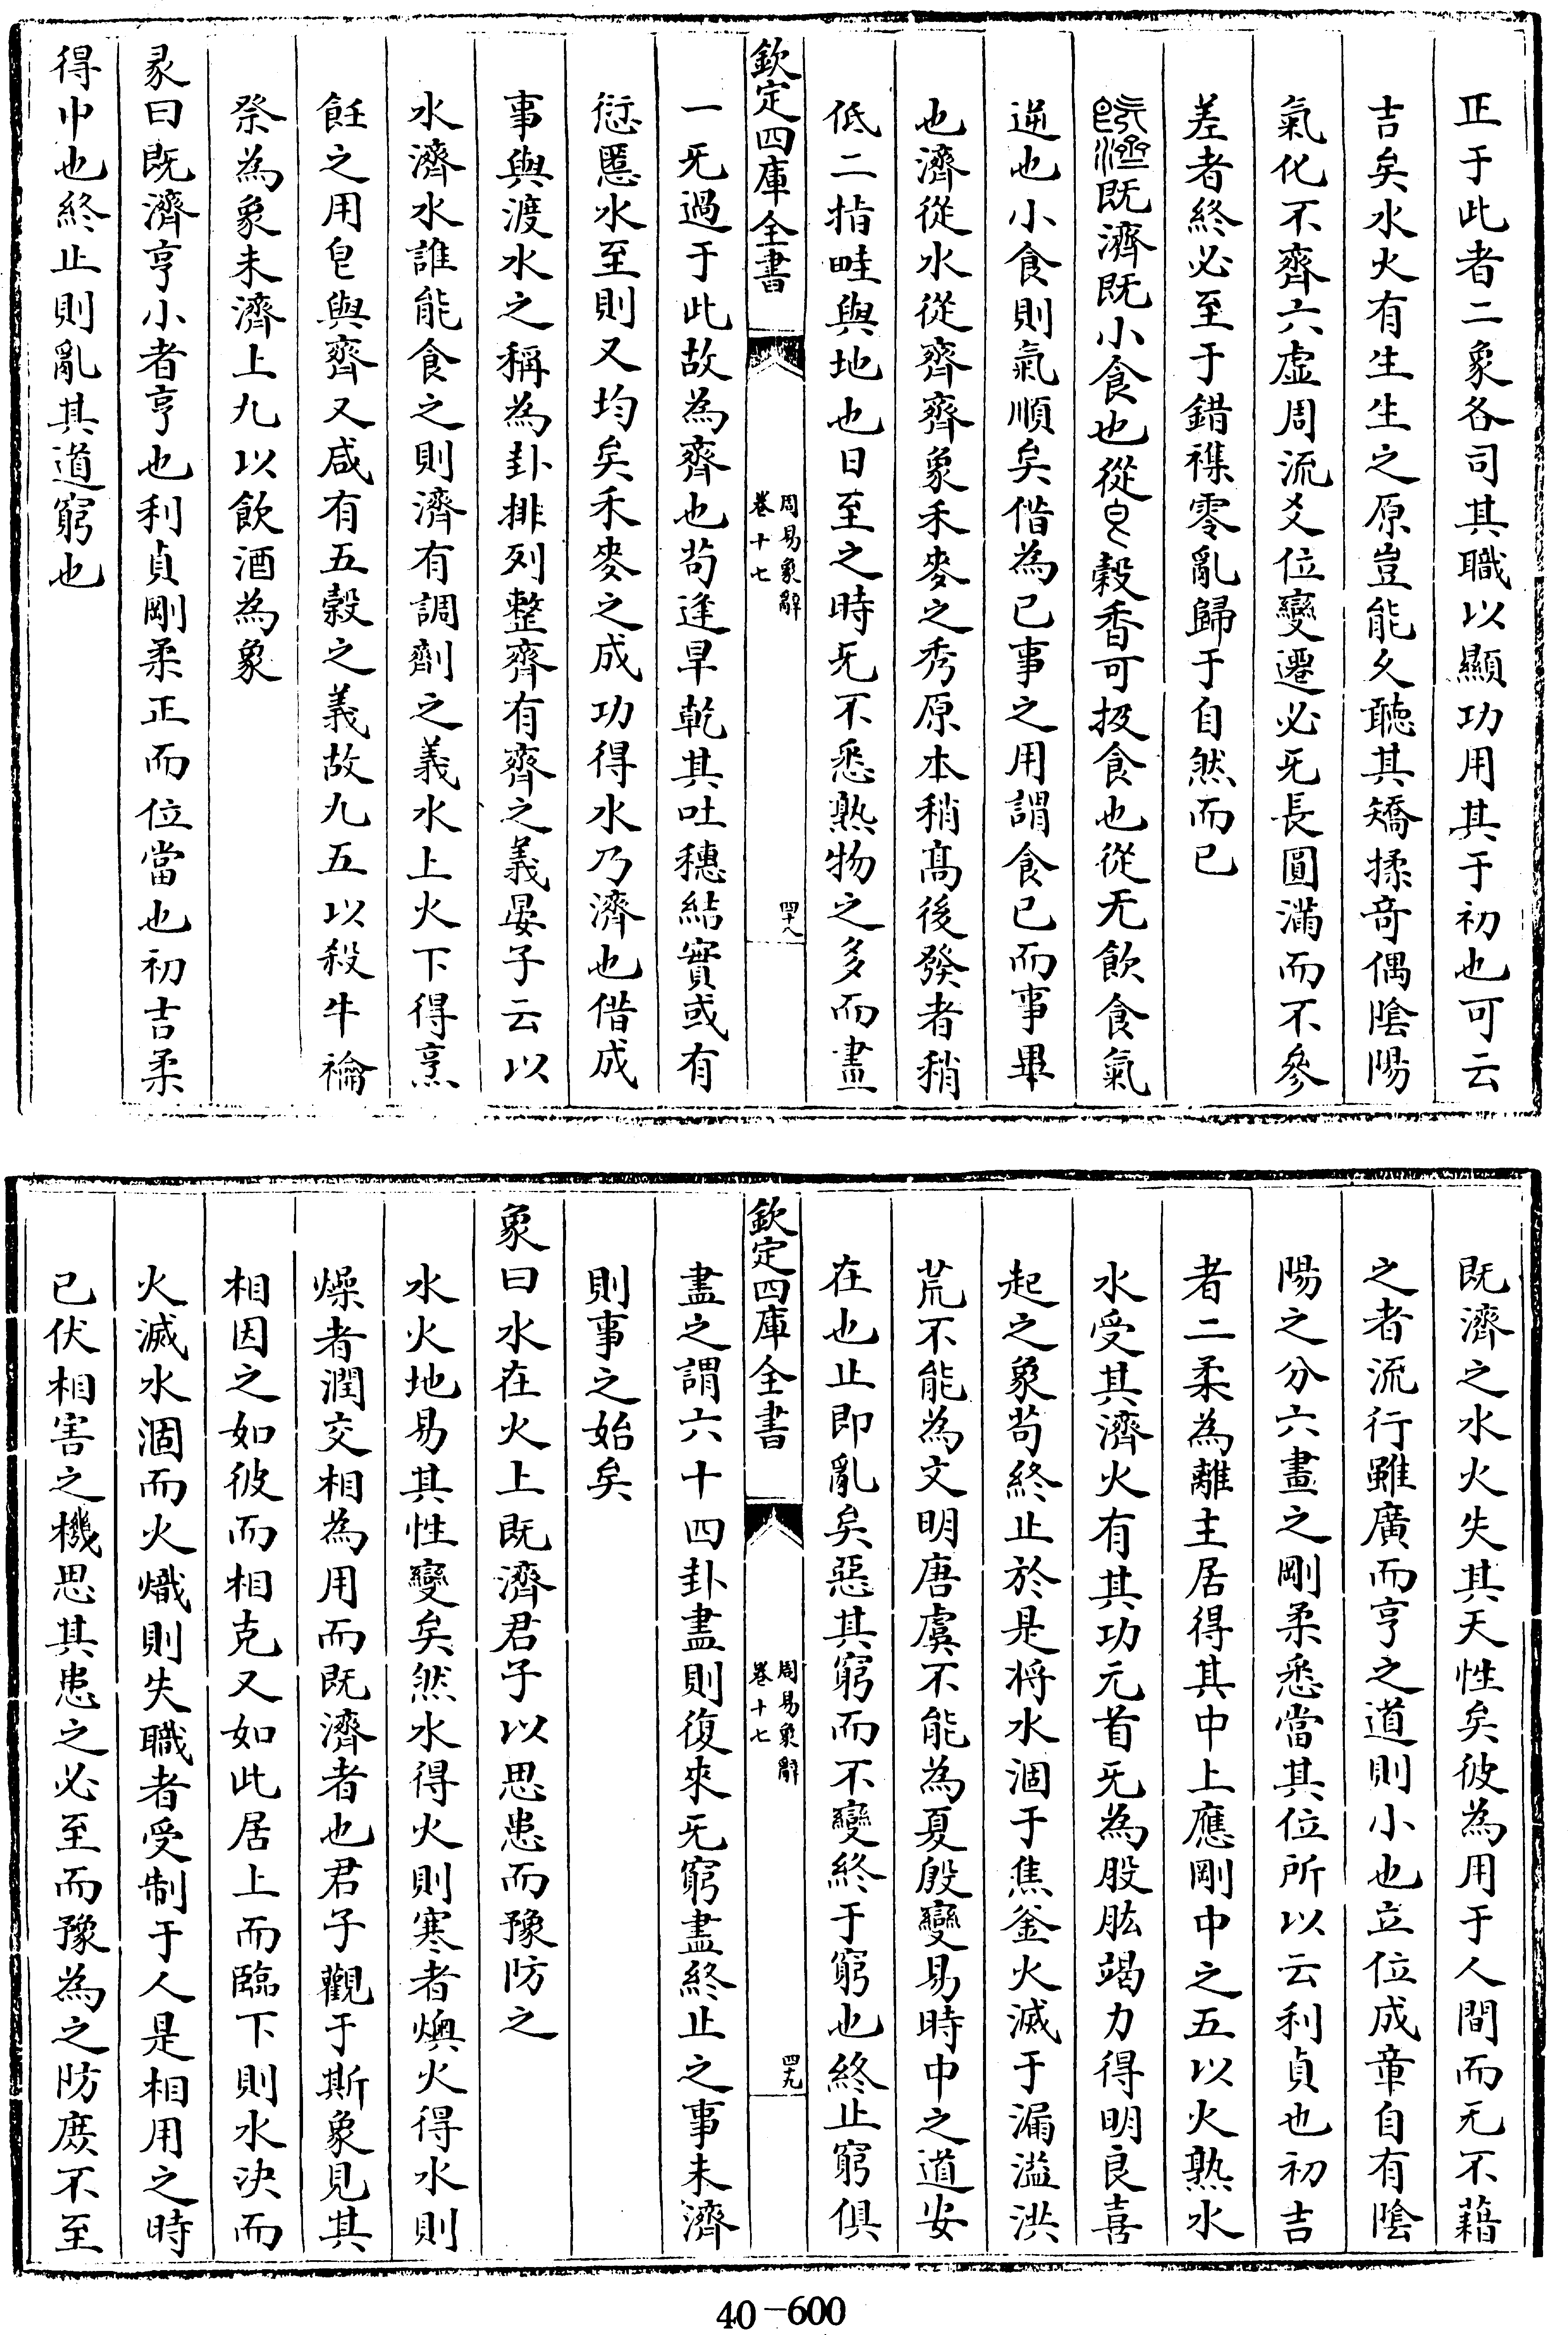 正于此者二象各司其職以顯功用其于初也可云
吉矣水火有生生之原豈能久聽其矯揉奇偶陰陽
氣化不齊六虛周流爻位變遷必无長圓滿而不參
差者終必至于錯襍零亂歸于自然而已
既濟既小食也從皀穀香可扱食也從旡飲食氣
逆也小食則氣順矣借為已事之用謂食已而事畢
也濟從水從齊齊象禾麥之秀原本稍髙後發者稍
低二指畦與地也日至之時无不悉熟物之多而畫
欽定四庫全書
周易象辭
卷十七
四十八
一无過于此故為齊也苟逢旱乾其吐穗結實或有
愆慝水至則又均矣禾麥之成功得水乃濟也借成
事與渡水之稱為卦排列整齊有齊之義晏子云以
水濟水誰能食之則濟有調劑之義水上火下得烹
飪之用皀與齊又咸有五穀之義故九五以殺牛禴
祭為象未濟上九以飲酒為象
彖曰既濟亨小者亨也利貞剛柔正而位當也初吉柔
得中也終止則亂其道窮也
既濟之水火失其天性矣彼為用于人間而无不藉
之者流行雖廣而亨之道則小也立位成章自有陰
陽之分六畫之剛柔悉當其位所以云利貞也初吉
者二柔為離主居得其中上應剛中之五以火熟水
水受其濟火有其功元首无為股肱竭力得明良喜
起之象苟終止於是将水涸于焦釡火滅于漏溢洪
荒不能為文明唐虞不能為夏殷變易時中之道安
在也止即亂矣惡其窮而不變終于窮也終止窮俱
欽定四庫全書
周易象辭
卷十七
四十九
盡之謂六十四卦盡則復來无窮盡終止之事未濟
則事之始矣
象曰水在火上既濟君子以思患而豫防之
水火地易其性變矣然水得火則寒者燠火得水則
燥者潤交相為用而既濟者也君子觀于斯象見其
相因之如彼而相克又如此居上而臨下則水決而
火滅水涸而火熾則失職者受制于人是相用之時
已伏相害之機思其患之必至而豫為之防庶不至
40-600